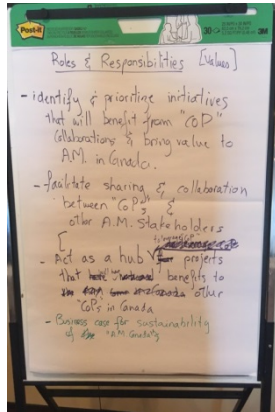 Post-it
30
3M
Roles & Responsibilities [Values]
- identify & prioritize initiatives
that will benefit from "CoP"
Collaborations & bring value to
A.M. in Canada.
- facilitate sharing & collaboration
between "CoPs" &
other A.M. Stakeholders
- Act as a hub for projects
that benefits to
other
"CoPs" in Canada
- Business case for sustainability
of "AM Canada"